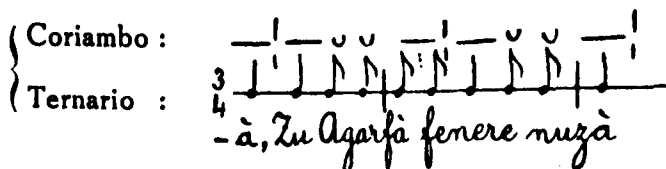 Coriambo :
Ternario :
3
4
- à, Zu Agarfà fenere nuzà